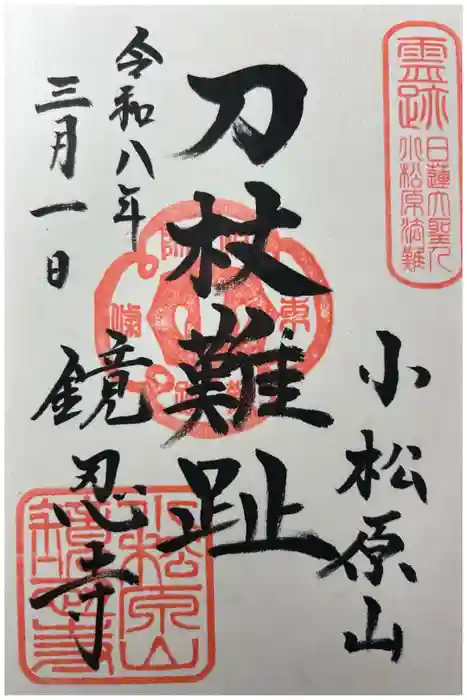 霊跡
日蓮大聖人
小松原法難
小松原山
刀杖難趾
鏡忍寺
令和八年
三月一日
小松原山
鏡忍寺